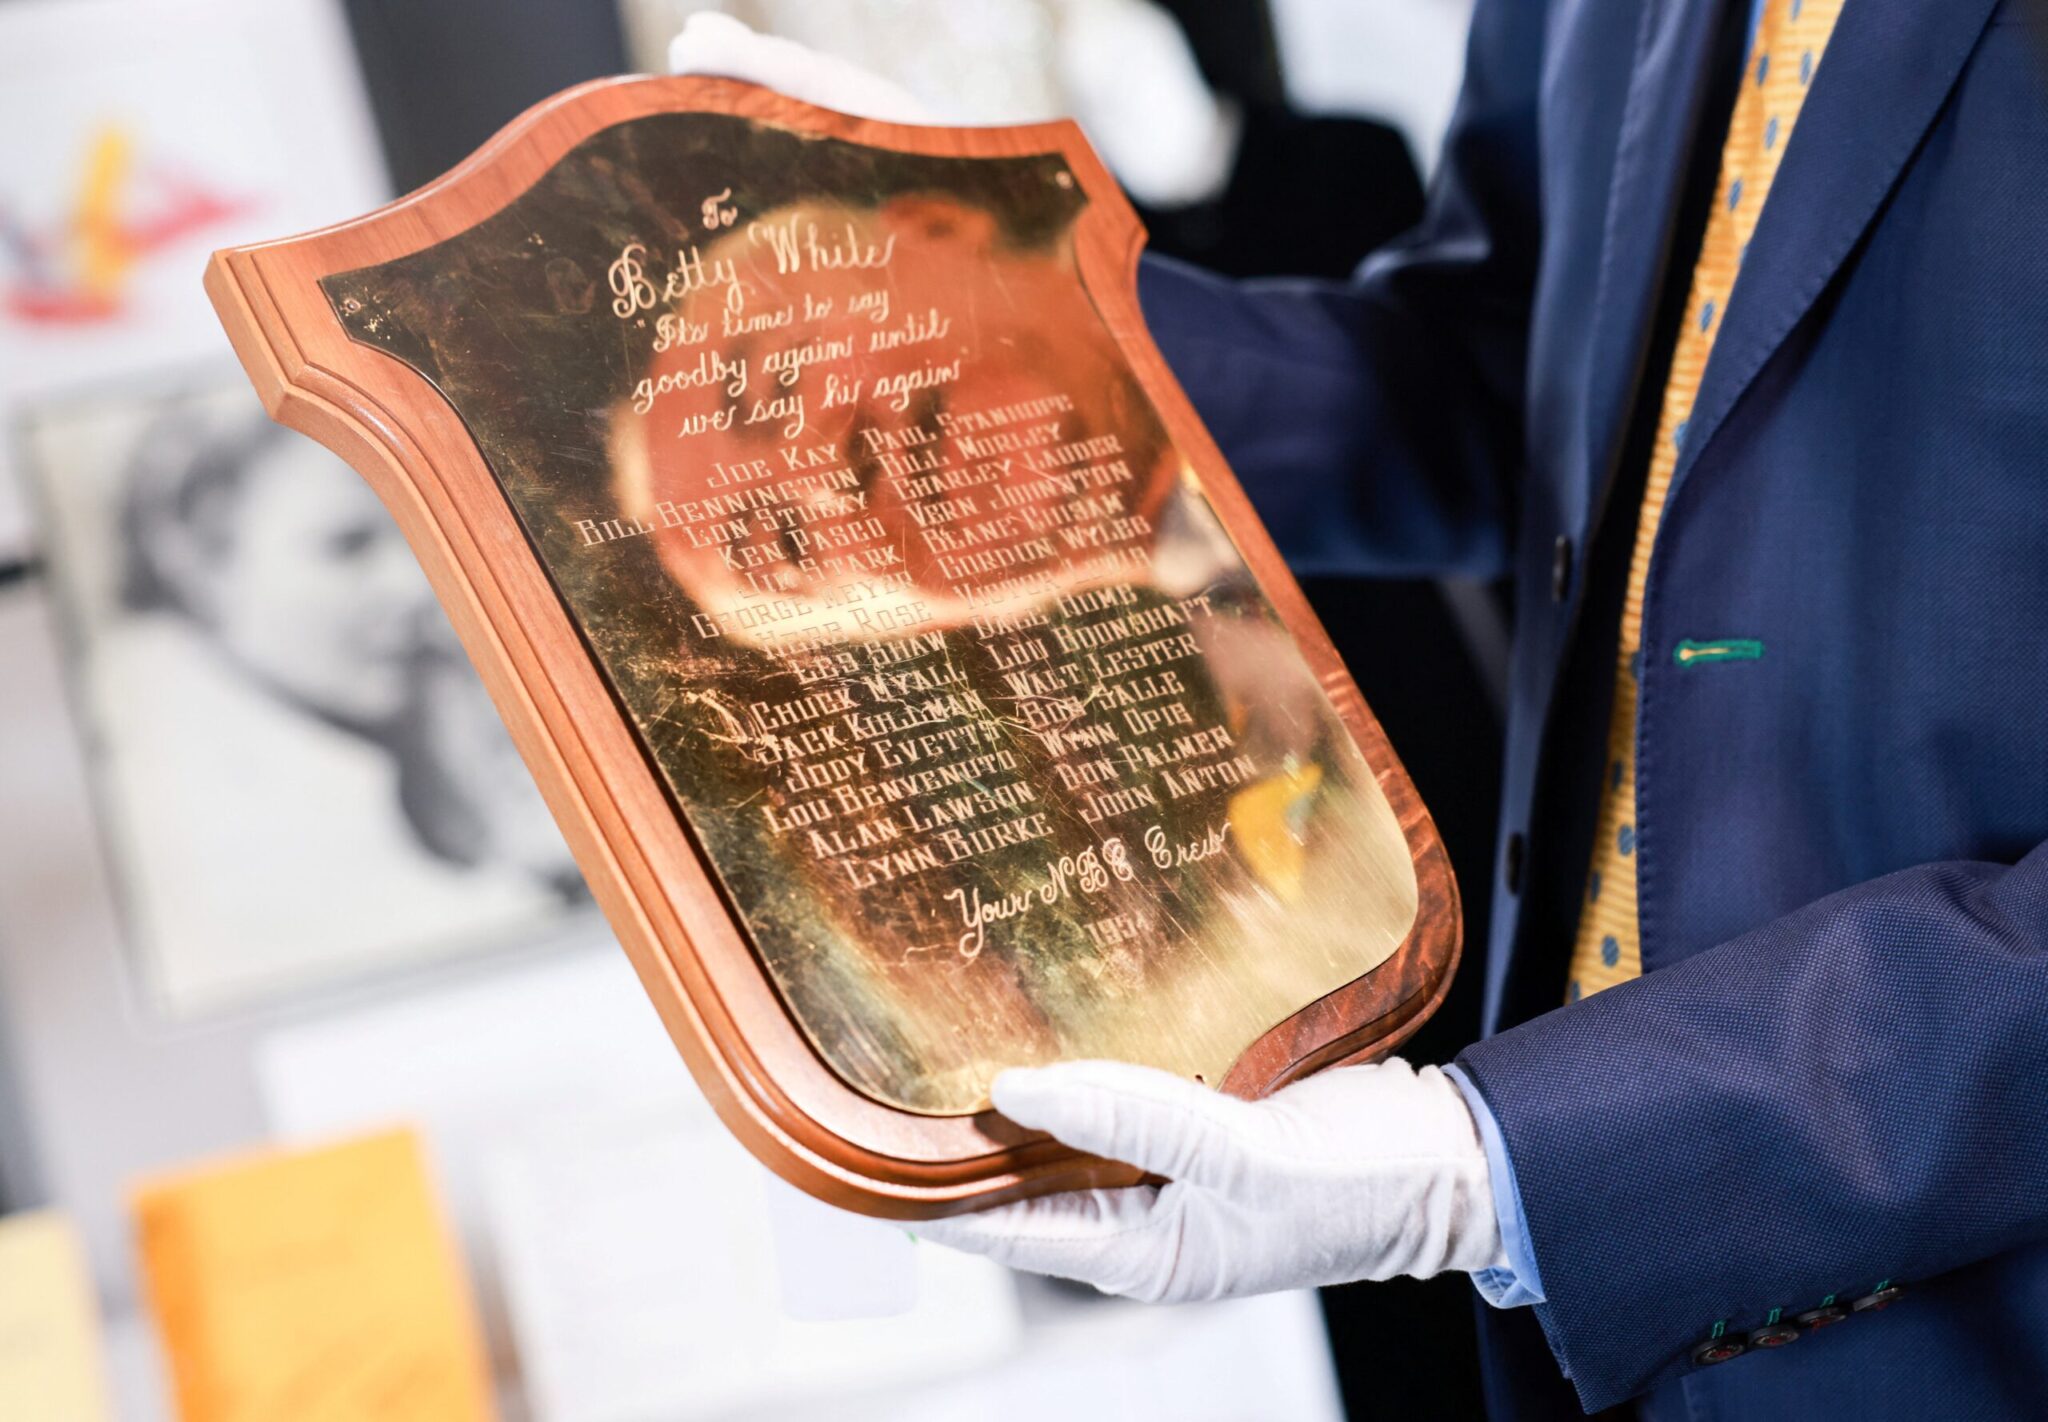 To
Betty White
"Its time to say
goodby again until
we say hi again"
JOE KAY PAUL STANHOPE
BILL BENNINGTON BILL MORLEY
LON STUCKY CHARLEY LAUDER
KEN PASCO VERN JOHNSTON
JIM STARK
GEORGE GORDON WYLES
HERB ROSE VICTOR
LES SHAW
CHUCK MYALL LOU
JACK KULLMAN WALT LESTER
JODY EVETTS BOB
LOU BENVENUTO WYNN OPIE
ALAN LAWSON DON PALMER
LYNN BURKE JOHN ANTON
Your NBC Crew
1954